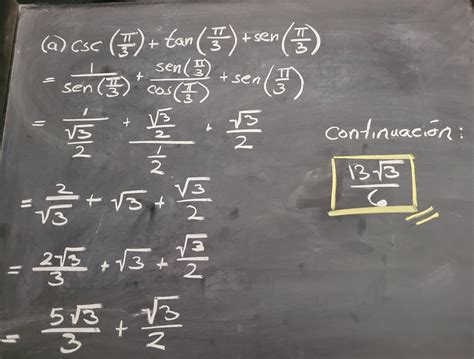 (a) csc (π/3) + tan (π/3) + sen (π/3)
= 1/sen(π/3) + sen(π/3)/cos(π/3) + sen(π/3)
= 1/(√3/2) + (√3/2)/(1/2) + √3/2
= 2/√3 + √3 + √3/2
= 2√3/3 + √3 + √3/2
= 5√3/3 + √3/2
continuación:
13√3/6